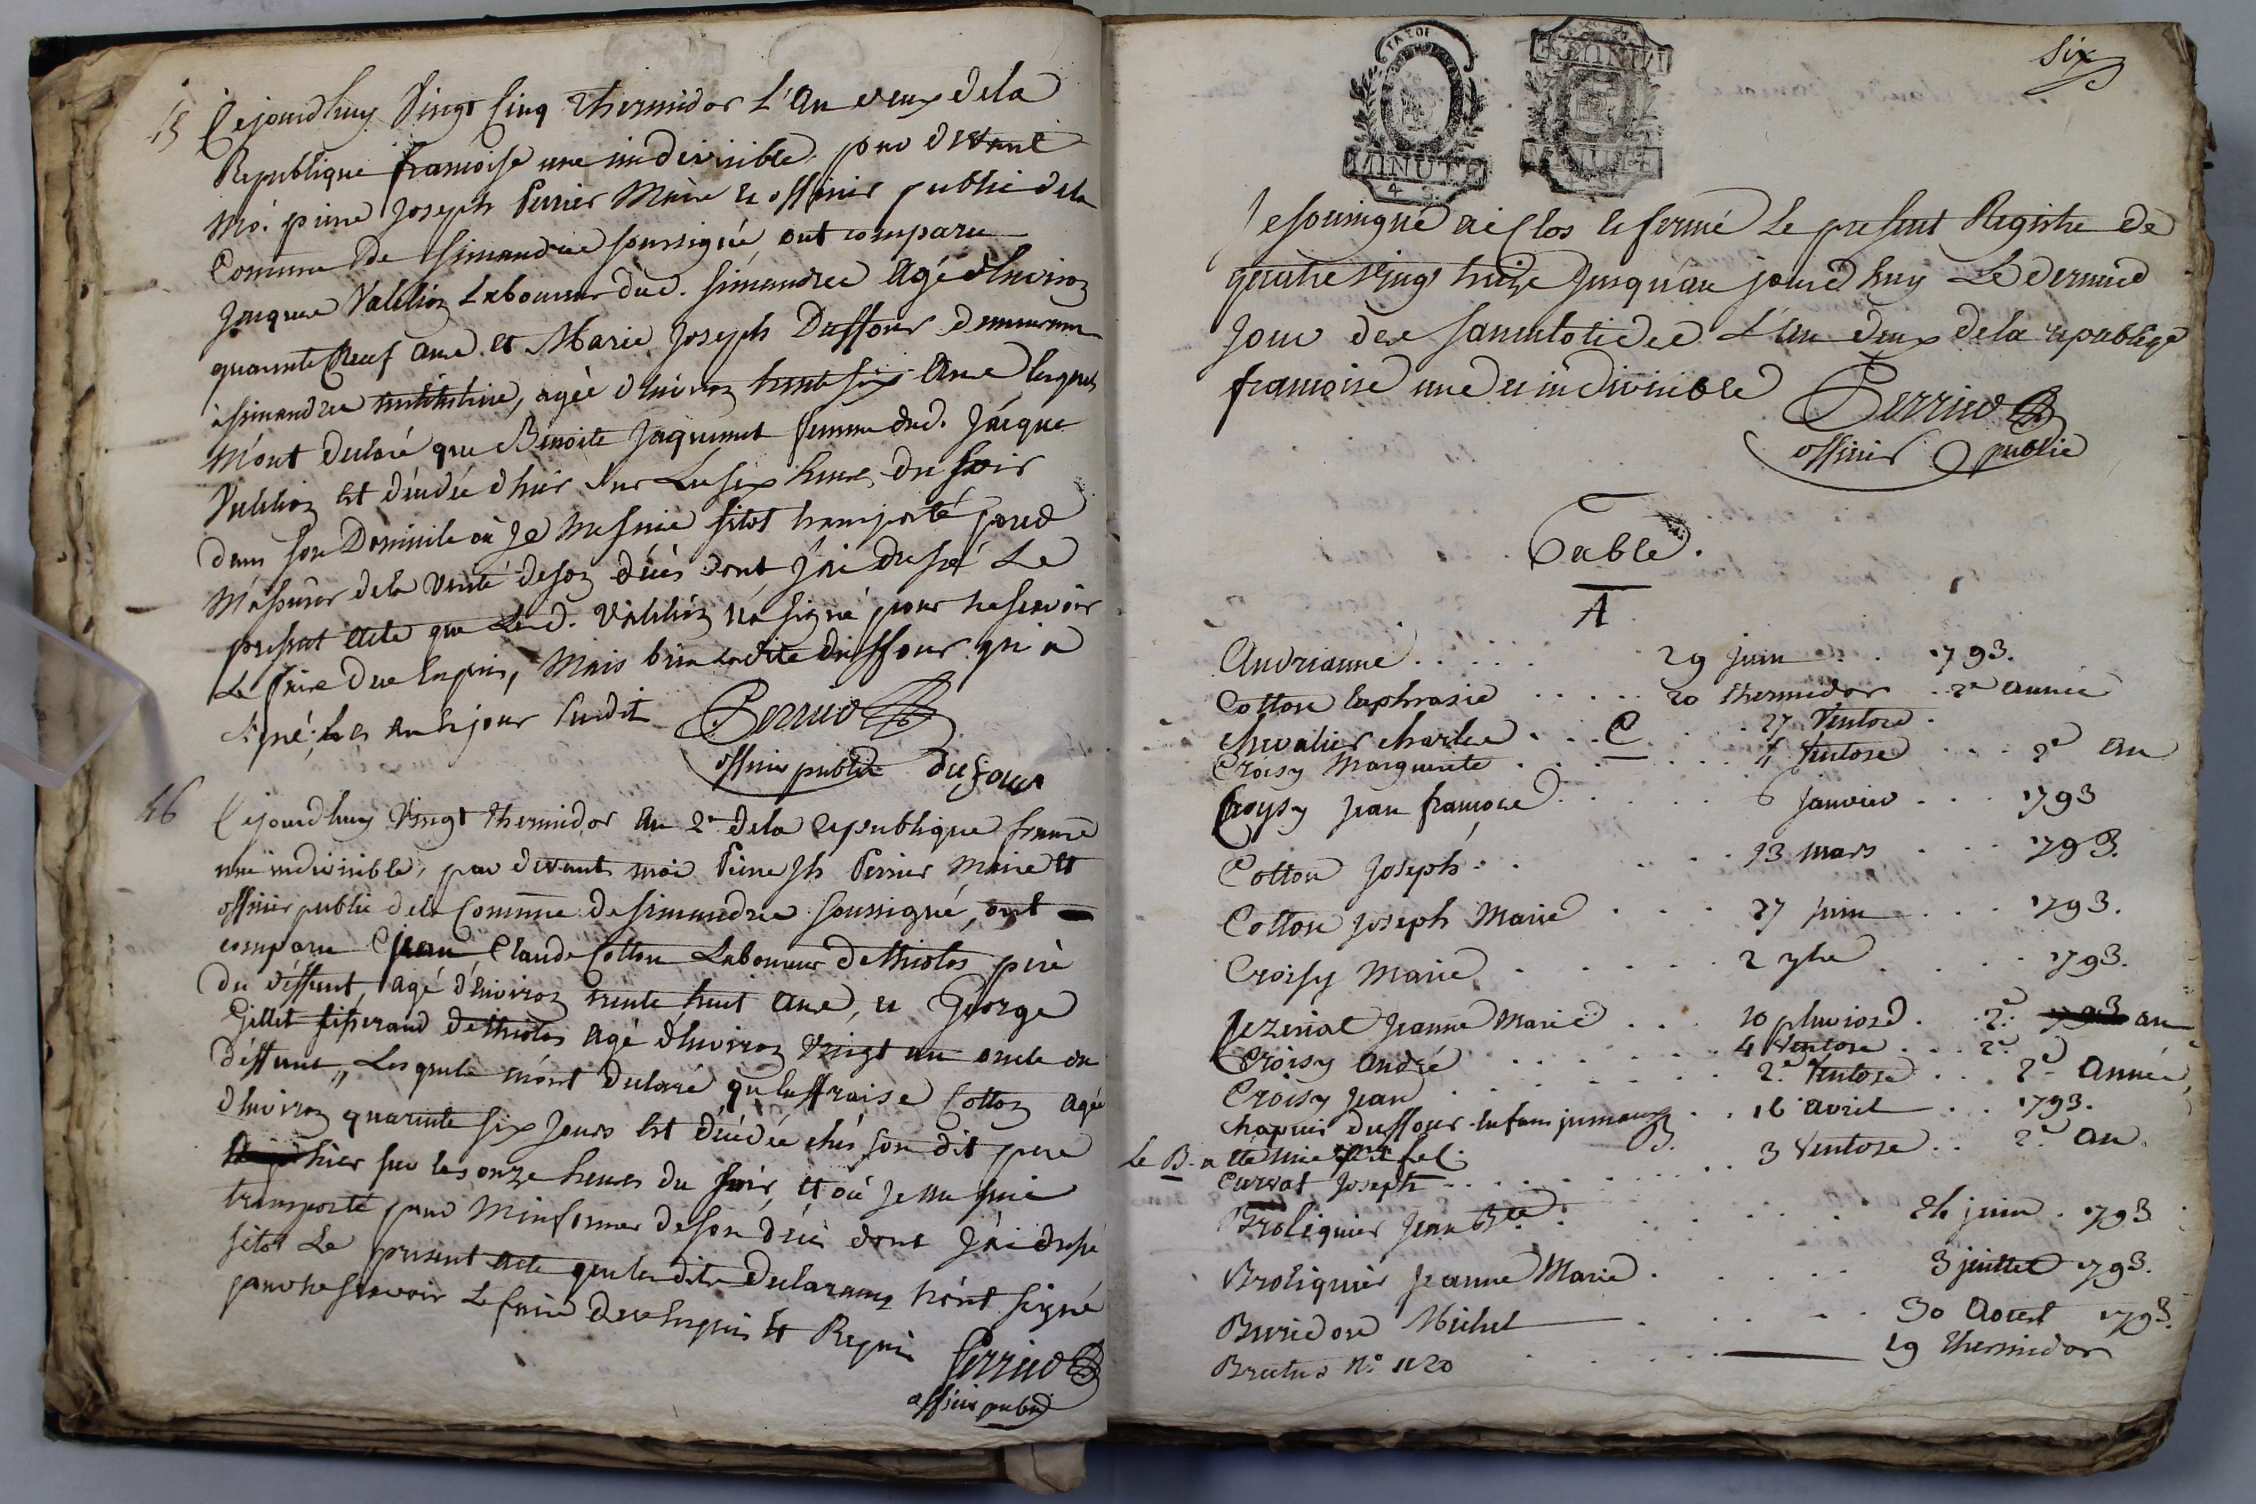 15 Cejourdhuy Vingt Cinq thermidor L'an deux dela
Republique francoise une indivisible, par devant
Mò. pierre Joseph Perrier Maire et officier public dela
Commune de simandre soussigné ont comparu
Jacque Vallion Laboureur dud. simandre agé d'huviron
quarante Neuf ans et Marie Joseph Duffour demeurant
a simandre institutrice, agée d'huviron trente six ans lesquels
M'ont declaré que Benoite Jaquemet femme dud. Jacque
Vallion est décedée d'hier sur Les six heures du soir
dans son Domicile où Je me suis sitot transporté pour
M'assurer dela verité deson décès dont J'ai dressé Le
present acte que Led. Vallion n'a signé pour ne scavoir
Le faire de ce enquis, Mais bien ladite duffour qui a
signé; Les an et jour susdit Perrier
officier public dufour
46 Cejourdhuy Vingt thermidor an 2e dela republique franco
une indivisible, par devant moi Pierre Jh Perrier Maire et
officier public dela Commune de simandre soussigné, ont
comparu Claude Cotton Laboureur de thiolos père
du déffunt, agé d'huviron trente huit ans, et George
Gillet de thiolos agé d'huviron Vingt un oncle du
déffunt, Lesquels m'ont declaré qu'Euffraise Cotton agée
d'huviron quarante six Jours est décédée chés son dit pere
hier sur les onze heures du soir, et où Je me suis
transporté pour M'informer deson décès dont J'ai dressé
sitot Le present acte que lesdits declarans n'ont signé
pour ne scavoir Le faire de ce enquis et Requis
Perrier
officier public
six
MINUTE
4 S.
MINUTE
Je soussigné ai Clos et fermé Le present Registre de
quatre vingt treize Jusqu'au jourd'huy Le dernier
Jour des sanculotides L'an deux dela republique
francoise une et indivisible Perrier
officier public
Table.
A
Andrianne ...... 29 Juin .. 1793.
Cotton Euphrasie ..... 20 thermidor .. 2e année
Chevalier charles ... C ... 27 Ventose .
Croisy Marguerite ...... 4 Ventose ... 2e an
Croysy Jean francois ..... 6 Janvier ... 1793
Cotton Joseph ..... 13 mars ... 1793.
Cotton Joseph Marie ... 27 Juin ... 1793.
Croisy Marie ..... 2 7bre .... 1793.
Jezeriat Jeanne Marie ... 10 pluviose . 2e an
Croisy André ....... 4 Ventose ... 2e
Croisy Jean ....... 2e Ventose ... 2e Année
chapuis duffour enfans jumeaux .. 16 avril .. 1793.
Le B. a été mis
Curvat Joseph ....... 3 Ventose .. 2e an.
Broliquier Jean Bte ...... 26 juin . 1793
Broliquier Jeanne Marie ..... 3 juillet 1793.
Buridon Michel .... 30 Aoust 1793.
Brutus N° 1120 .... 19 thermidor